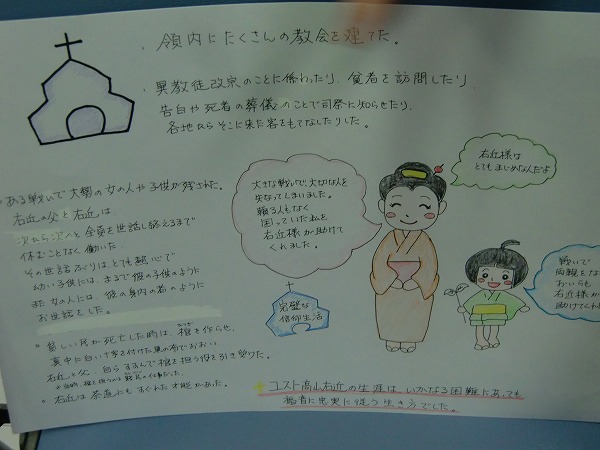 ・領内にたくさんの教会を建てた。
・異教徒改宗のことに係わったり、貧者を訪問したり、
告白や死者の葬儀のことで司祭に知らせたり、
各地からそこに来た客をもてなしたりした。
ある戦いで大勢の女の人や子供が残された。
右近の父と右近は
次から次へと全員を世話し終えるまで
休むことなく働いた。
その世話ぶりはとても熱心で
幼い子供には、まるで彼の子供のように
また女の人には、彼の身内の者のように
お世話をした。
貧しい民が死亡した時は、棺を作らせ、
真中に白い十字を付けた黒の布でおおい
右近と父、自らすすんで棺を担う役を引き受けた。
右近は茶道にもすぐれた才能があった。
大きな戦いで、大切な人を
失なってしまいました。
頼る人もなく
困っていた私を
右近様が助けて
くれました。
右近様は
とてもまじめなんだよ
戦いで
両親をな
おいらも
右近様が
助けてくれ
完璧な
信仰生活
コスト高山右近の生涯は、いかなる困難にあっても
福音に忠実に従う生き方でした。